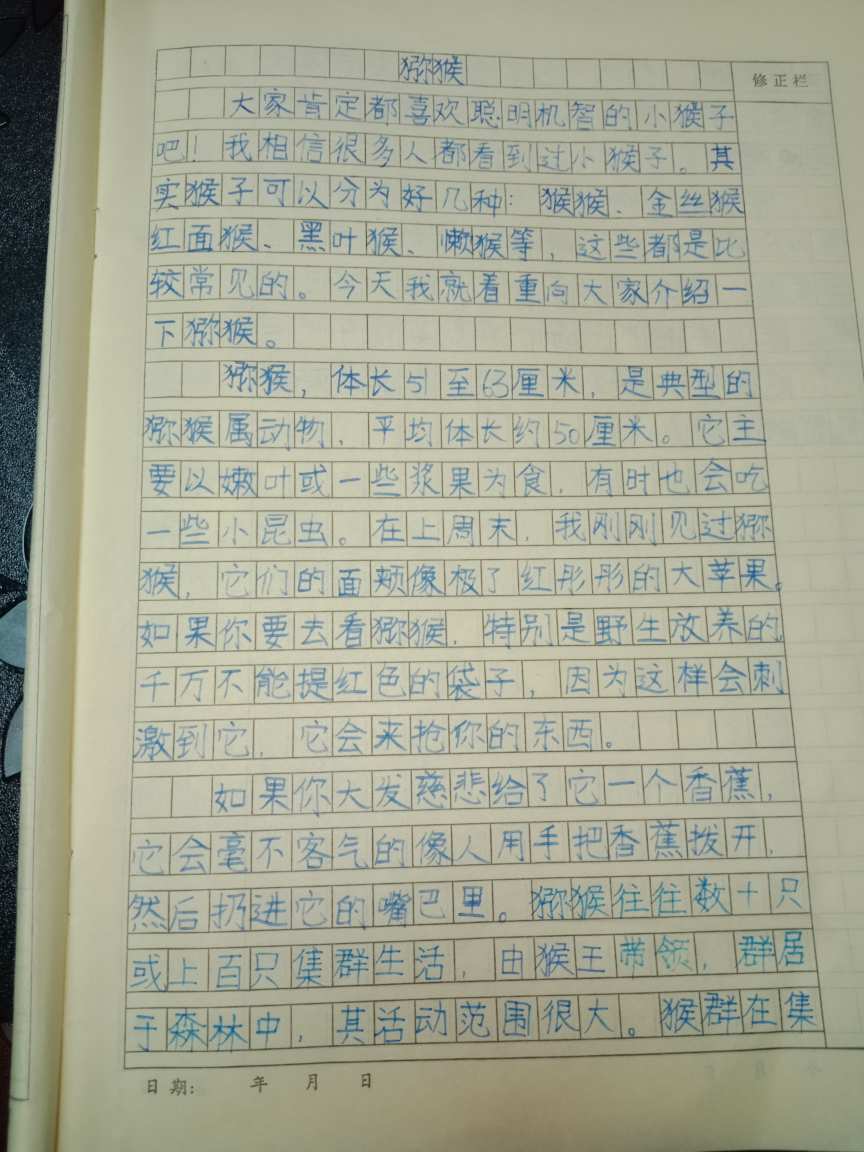 猕猴
修正栏
大家肯定都喜欢聪明机智的小猴子
吧！我相信很多人都看到过小猴子。其
实猴子可以分为好几种：猴猴、金丝猴
红面猴、黑叶猴、懒猴等，这些都是比
较常见的。今天我就着重向大家介绍一
下猕猴。
猕猴，体长51至63厘米，是典型的
猕猴属动物，平均体长约50厘米。它主
要以嫩叶或一些浆果为食，有时也会吃
一些小昆虫。在上周末，我刚刚见过猕
猴，它们的面颊像极了红彤彤的大苹果。
如果你要去看猕猴，特别是野生放养的，
千万不能提红色的袋子，因为这样会刺
激到它，它会来抢你的东西。
如果你大发慈悲给了它一个香蕉，
它会毫不客气的像人用手把香蕉拨开，
然后扔进它的嘴巴里。猕猴往往数十只
或上百只集群生活，由猴王带领，群居
于森林中，其活动范围很大。猴群在集
日期： 年 月 日